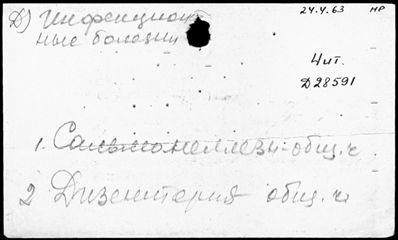 24.4.63 НР
Д) Инфекцион
ные болезни
Чит.
Д28591
1. Сальмонеллезы-общ.ч
2 Дизентерия общ.ч